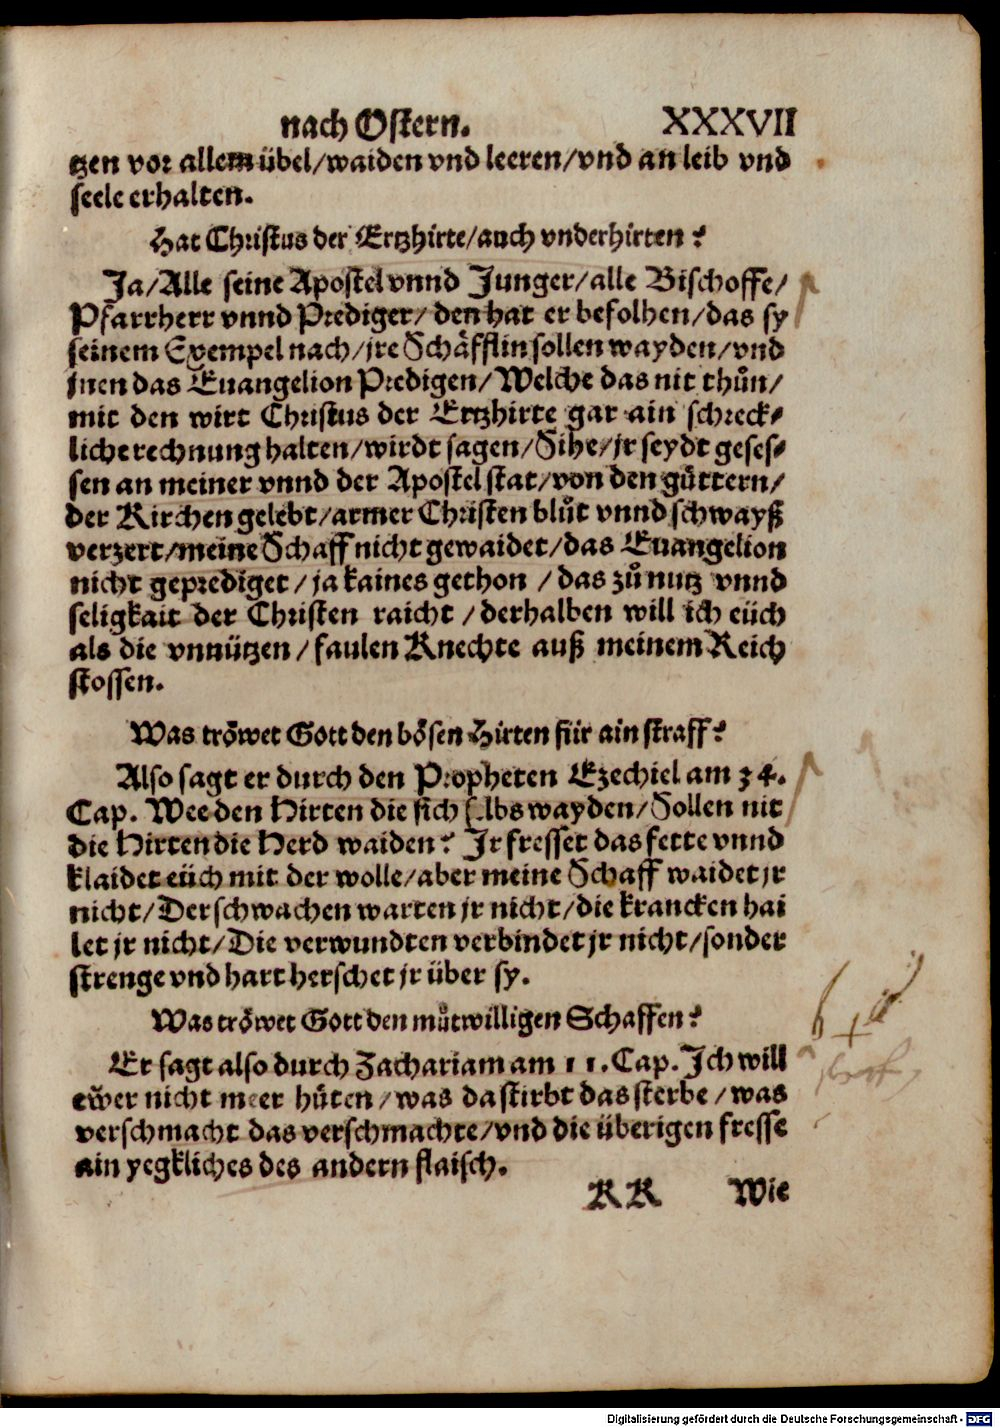 nach Ostern. XXXVII
tzen vor allem übel/waiden vnd leeren/vnd an leib vnd
seele erhalten.
Hat Christus der Ertzhirte/auch vnderhirten?
Ja/Alle seine Apostel vnnd Junger/alle Bischoffe/
Pfarrherr vnnd Prediger/den hat er befolhen/das sy
seinem Exempel nach/jre Schäfflin sollen wayden/vnd
jnen das Euangelion Predigen/Welche das nit thůn/
mit den wirt Christus der Ertzhirte gar ain schreck-
liche rechnung halten/wirdt sagen/Sihe/jr seydt geses-
sen an meiner vnnd der Apostel stat/von den gůttern/
der Kirchen gelebt/armer Christen blůt vnnd schwayß
verzert/meine Schaff nicht gewaidet/das Euangelion
nicht geprediget/ja kaines gethon/das zů nutz vnnd
seligkait der Christen raicht/derhalben will ich eüch
als die vnnützen/faulen Knechte auß meinem Reich
stossen.
Was tröwet Gott den bösen Hirten für ain straff?
Also sagt er durch den Propheten Ezechiel am 34.
Cap. Wee den Hirten die sich selbs wayden/Sollen nit
die Hirten die Herd waiden? Jr fresset das fette vnnd
klaidet eüch mit der wolle/aber meine Schaff waidet jr
nicht/Der schwachen warten jr nicht/die krancken hai
let jr nicht/Die verwundten verbindet jr nicht/sonder
strenge vnd hart herschet jr über sy.
Was tröwet Gott den můtwilligen Schaffen?
Er sagt also durch Zachariam am 11. Cap. Jch will
eẘer nicht meer hůten/was da stirbt das sterbe/was
verschmacht das verschmachte/vnd die überigen fresse
ain yegkliches des andern flaisch.
KK Wie
Digitalisierung gefördert durch die Deutsche Forschungsgemeinschaft - DFG